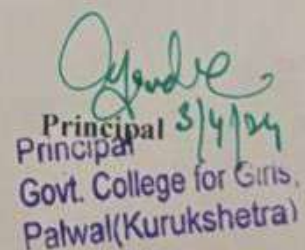 Principal 3/4/24
Principal
Govt. College for Girls,
Palwal(Kurukshetra)